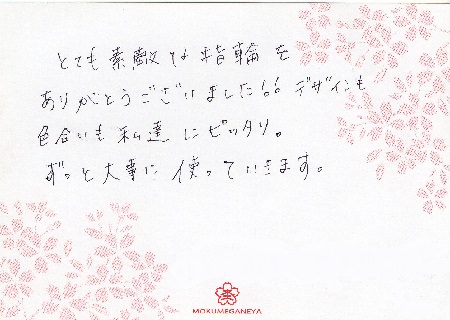 とても素敵な指輪を
ありがとうございました!! デザインも
色合いも私達にピッタリ。
ずっと大事に使っていきます。
MOKUMEGANEYA